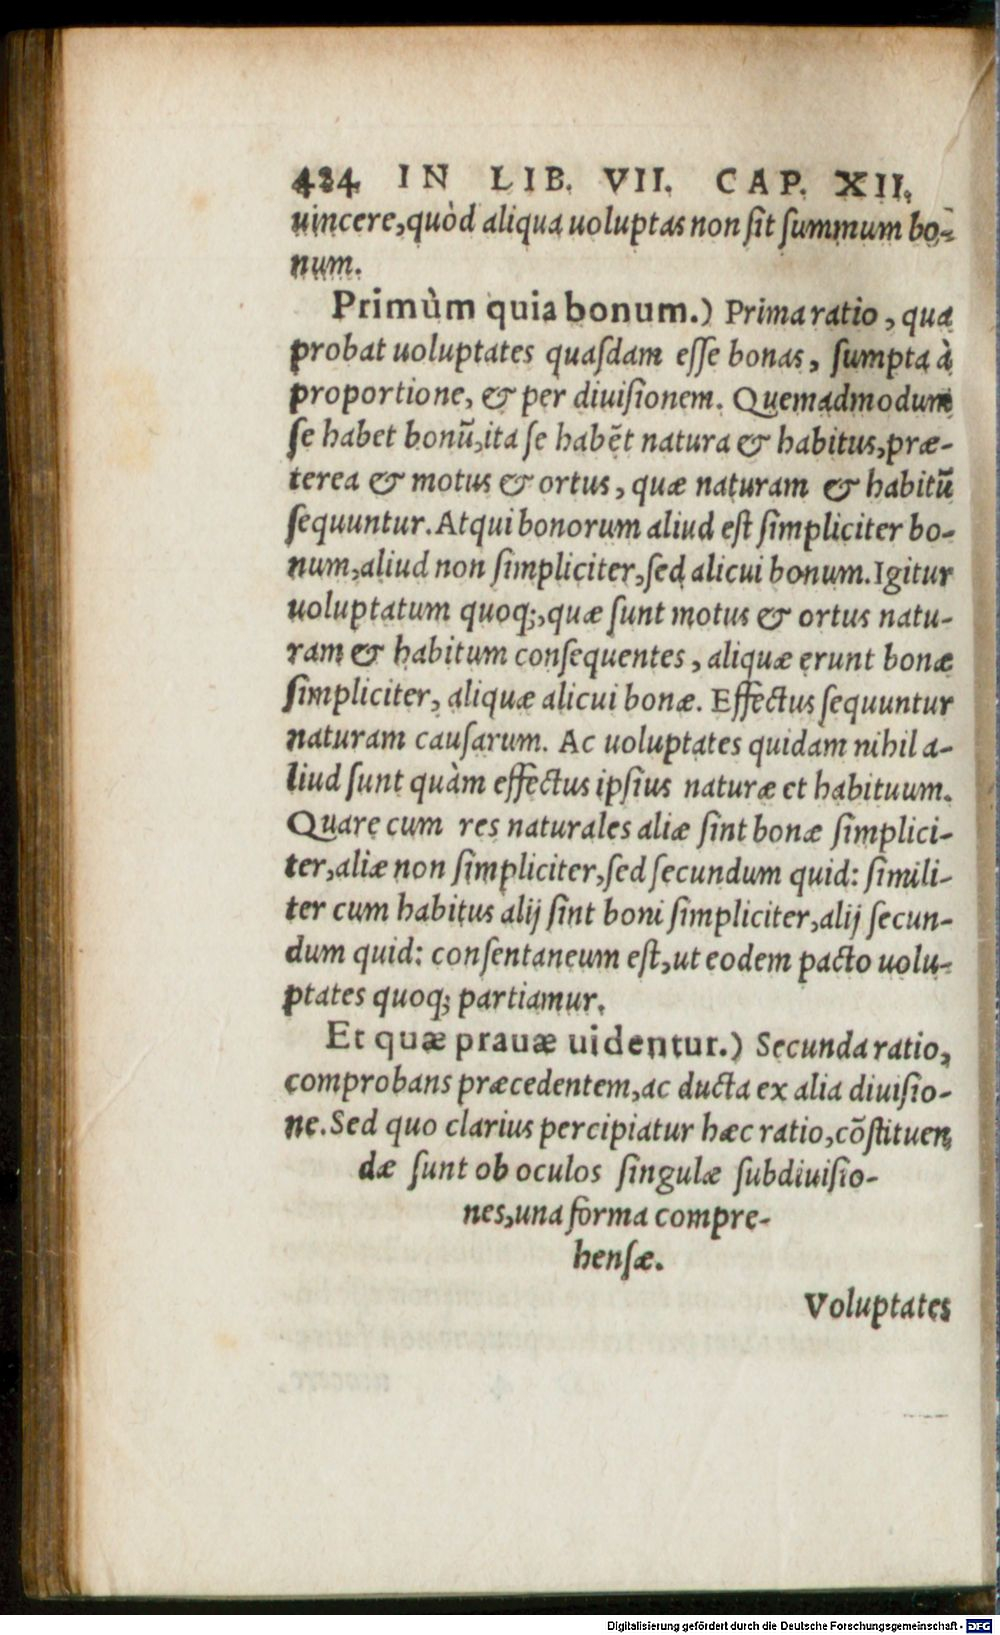 424 IN LIB. VII. CAP. XII.
uincere,quòd aliqua uoluptas non ſit ſummum bo-
num.
Primùm quia bonum.) Prima ratio, qua
probat uoluptates quaſdam eſſe bonas, ſumpta à
proportione, & per diuiſionem. Quemadmodum
ſe habet bonũ,ita ſe habẽt natura & habitus,præ-
terea & motus & ortus, quæ naturam & habitũ
ſequuntur. Atqui bonorum aliud eſt ſimpliciter bo-
num,aliud non ſimpliciter,ſed alicui bonum. Igitur
uoluptatum quoq;,quæ ſunt motus & ortus natu-
ram & habitum conſequentes, aliquæ erunt bonæ
ſimpliciter, aliquæ alicui bonæ. Effectus ſequuntur
naturam cauſarum. Ac uoluptates quidam nihil a-
liud ſunt quàm effectus ipſius naturæ et habituum.
Quare cum res naturales aliæ ſint bonæ ſimplici-
ter,aliæ non ſimpliciter,ſed ſecundum quid: ſimili-
ter cum habitus alij ſint boni ſimpliciter,alij ſecun-
dum quid: conſentaneum eſt,ut eodem pacto uolu-
ptates quoq; partiamur.
Et quæ prauæ uidentur.) Secunda ratio,
comprobans præcedentem,ac ducta ex alia diuiſio-
ne. Sed quo clarius percipiatur hæc ratio,cõſtituen
dæ ſunt ob oculos ſingulæ ſubdiuiſio-
nes,una forma compre-
henſæ.
Voluptates
Digitalisierung gefördert durch die Deutsche Forschungsgemeinschaft - DFG